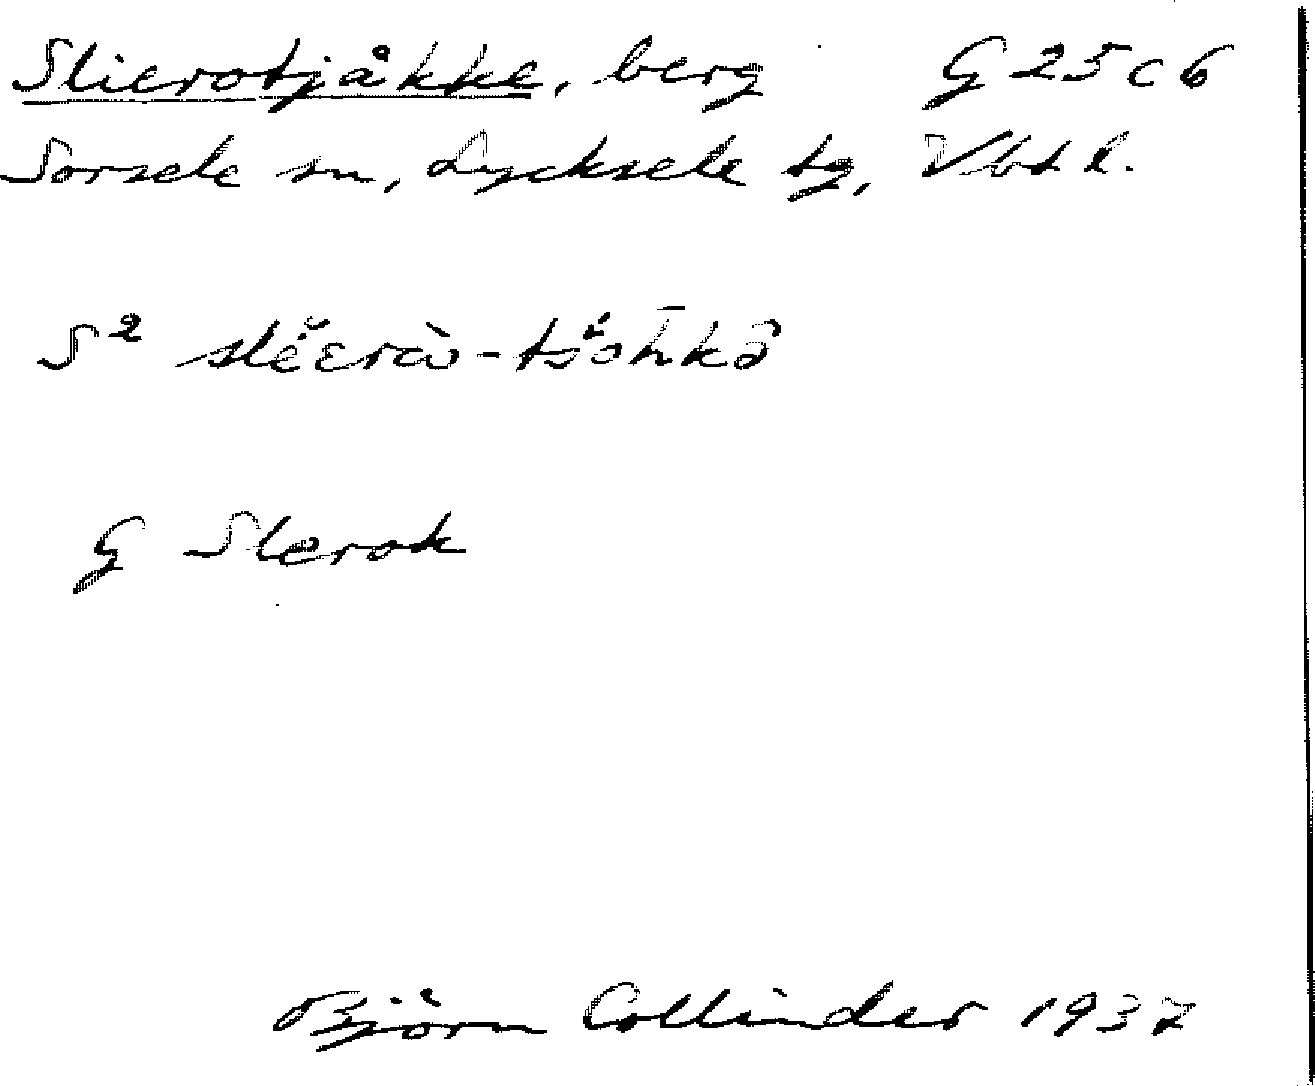 Slierotjåkke, berg G 25 c 6
Sorsele sn, Lycksele tg, Vbt l.
S²
G Slerok
Björn Collinder 1937